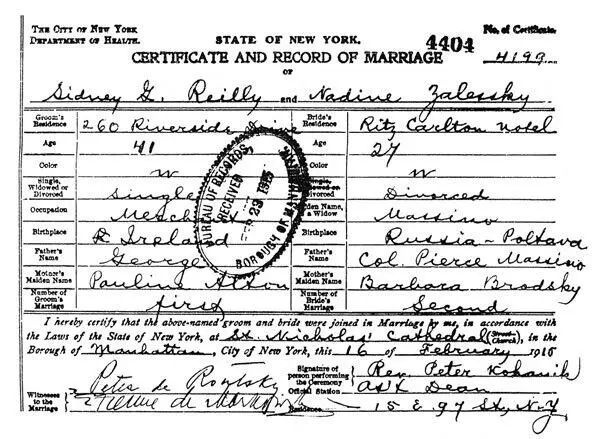 THE CITY OF NEW YORK
DEPARTMENT OF HEALTH.
STATE OF NEW YORK.
No. of Certificate
4404
CERTIFICATE AND RECORD OF MARRIAGE
4199
OF
Sidney G. Reilly and Nadine Zalessky
Groom's Residence 260 Riverside Drive Bride's Residence Ritz Carlton Hotel
Age 41 Age 27
Color W Color W
Single, Widowed or Divorced Single Single, Widowed or Divorced Divorced
Occupation Maiden Name, if a Widow Massino
Birthplace Ireland Birthplace Russia - Poltava
Father's Name George Father's Name Col. Pierce Massino
Mother's Maiden Name Pauline Mother's Maiden Name Barbara Brodsky
Number of Groom's Marriage first Number of Bride's Marriage Second
BUREAU OF RECORDS
RECEIVED
FEB 23 1915
BOROUGH OF MANHATTAN
I hereby certify that the above-named groom and bride were joined in Marriage by me, in accordance with
the Laws of the State of New York, at St. Nicholas' Cathedral (Street Church), in the
Borough of Manhattan, City of New York, this 16 of February 1915
Signature of person performing the Ceremony Rev. Peter Kohanik
Official Station Ass't Dean
Witnesses to the Marriage Peter de
Residence 15 E. 97 St, N.Y